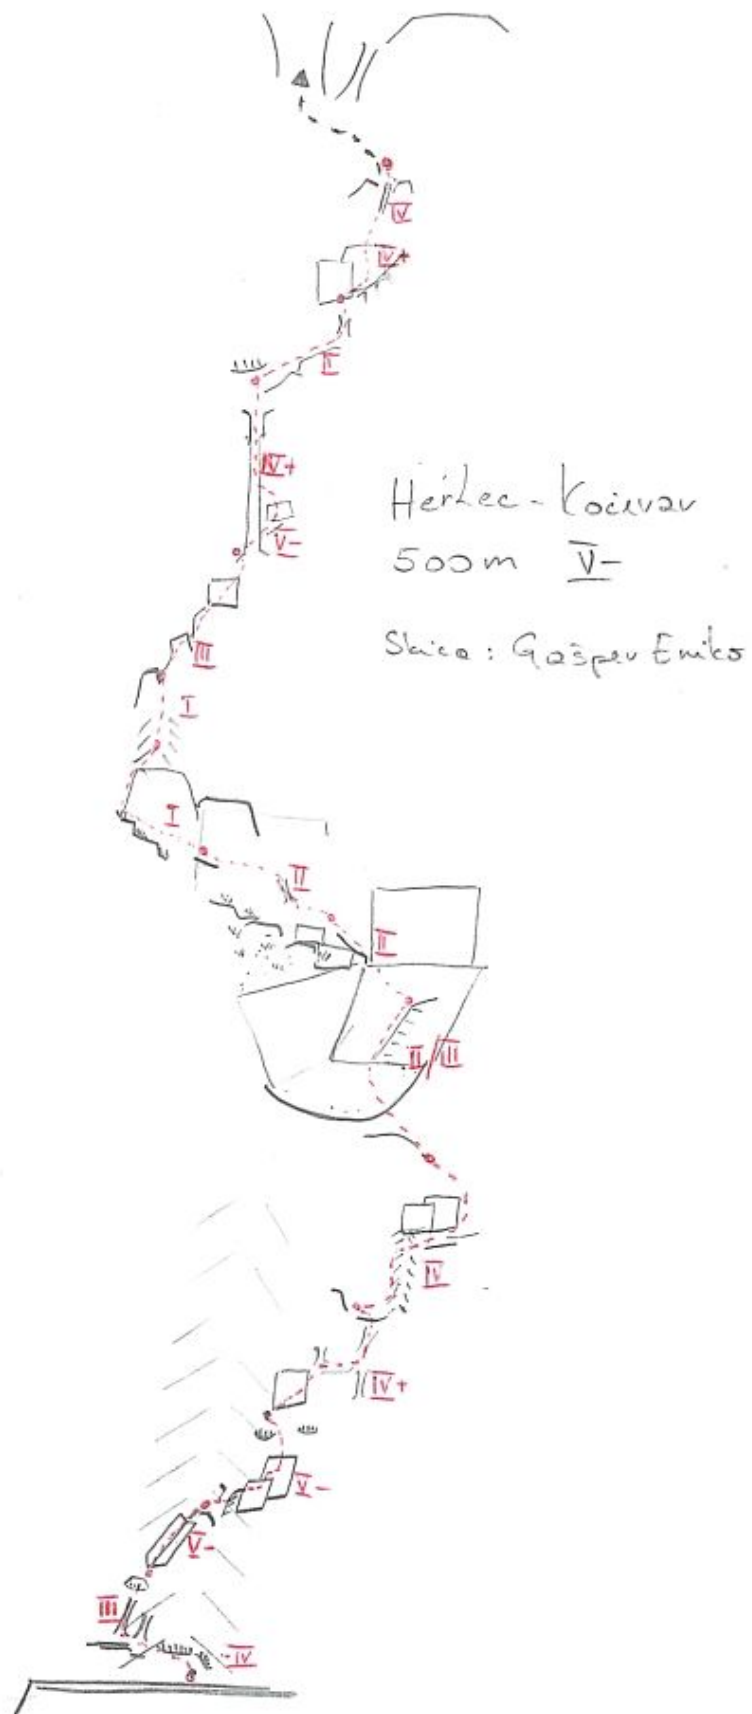 IV
IV+
II
IV+
Herlec - Kočevar
V-
500m V-
III
Skica : Gašper
I
I
II
II
II/III
IV
IV+
V-
V-
III
IV